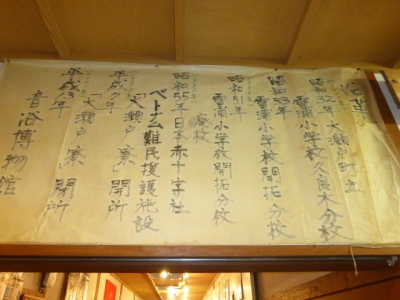 沿革
昭和32年 大瀬戸町立
雪浦小学校久良木分校
昭和33年
雪浦小学校開拓分校
昭和51年
雪浦小学校開拓分校
廃校
昭和55年日本赤十字社
ベトナム難民援護施設
「大瀬戸寮」開所
平成7年
「大瀬戸寮」閉所
平成13年
音浴博物館